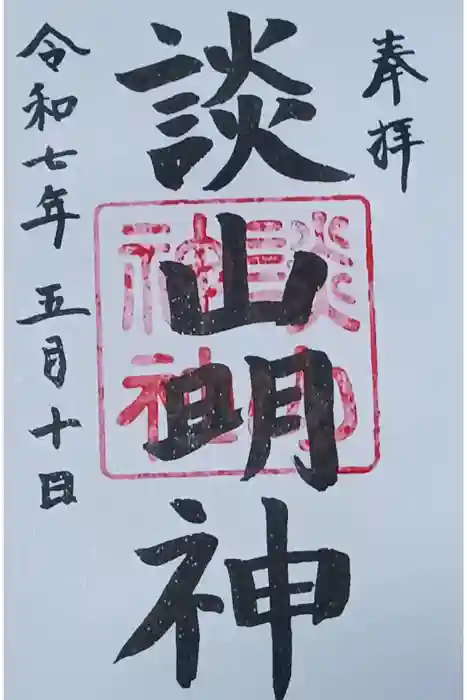 奉拝
談山明神
談山神社
令和七年 五月十日